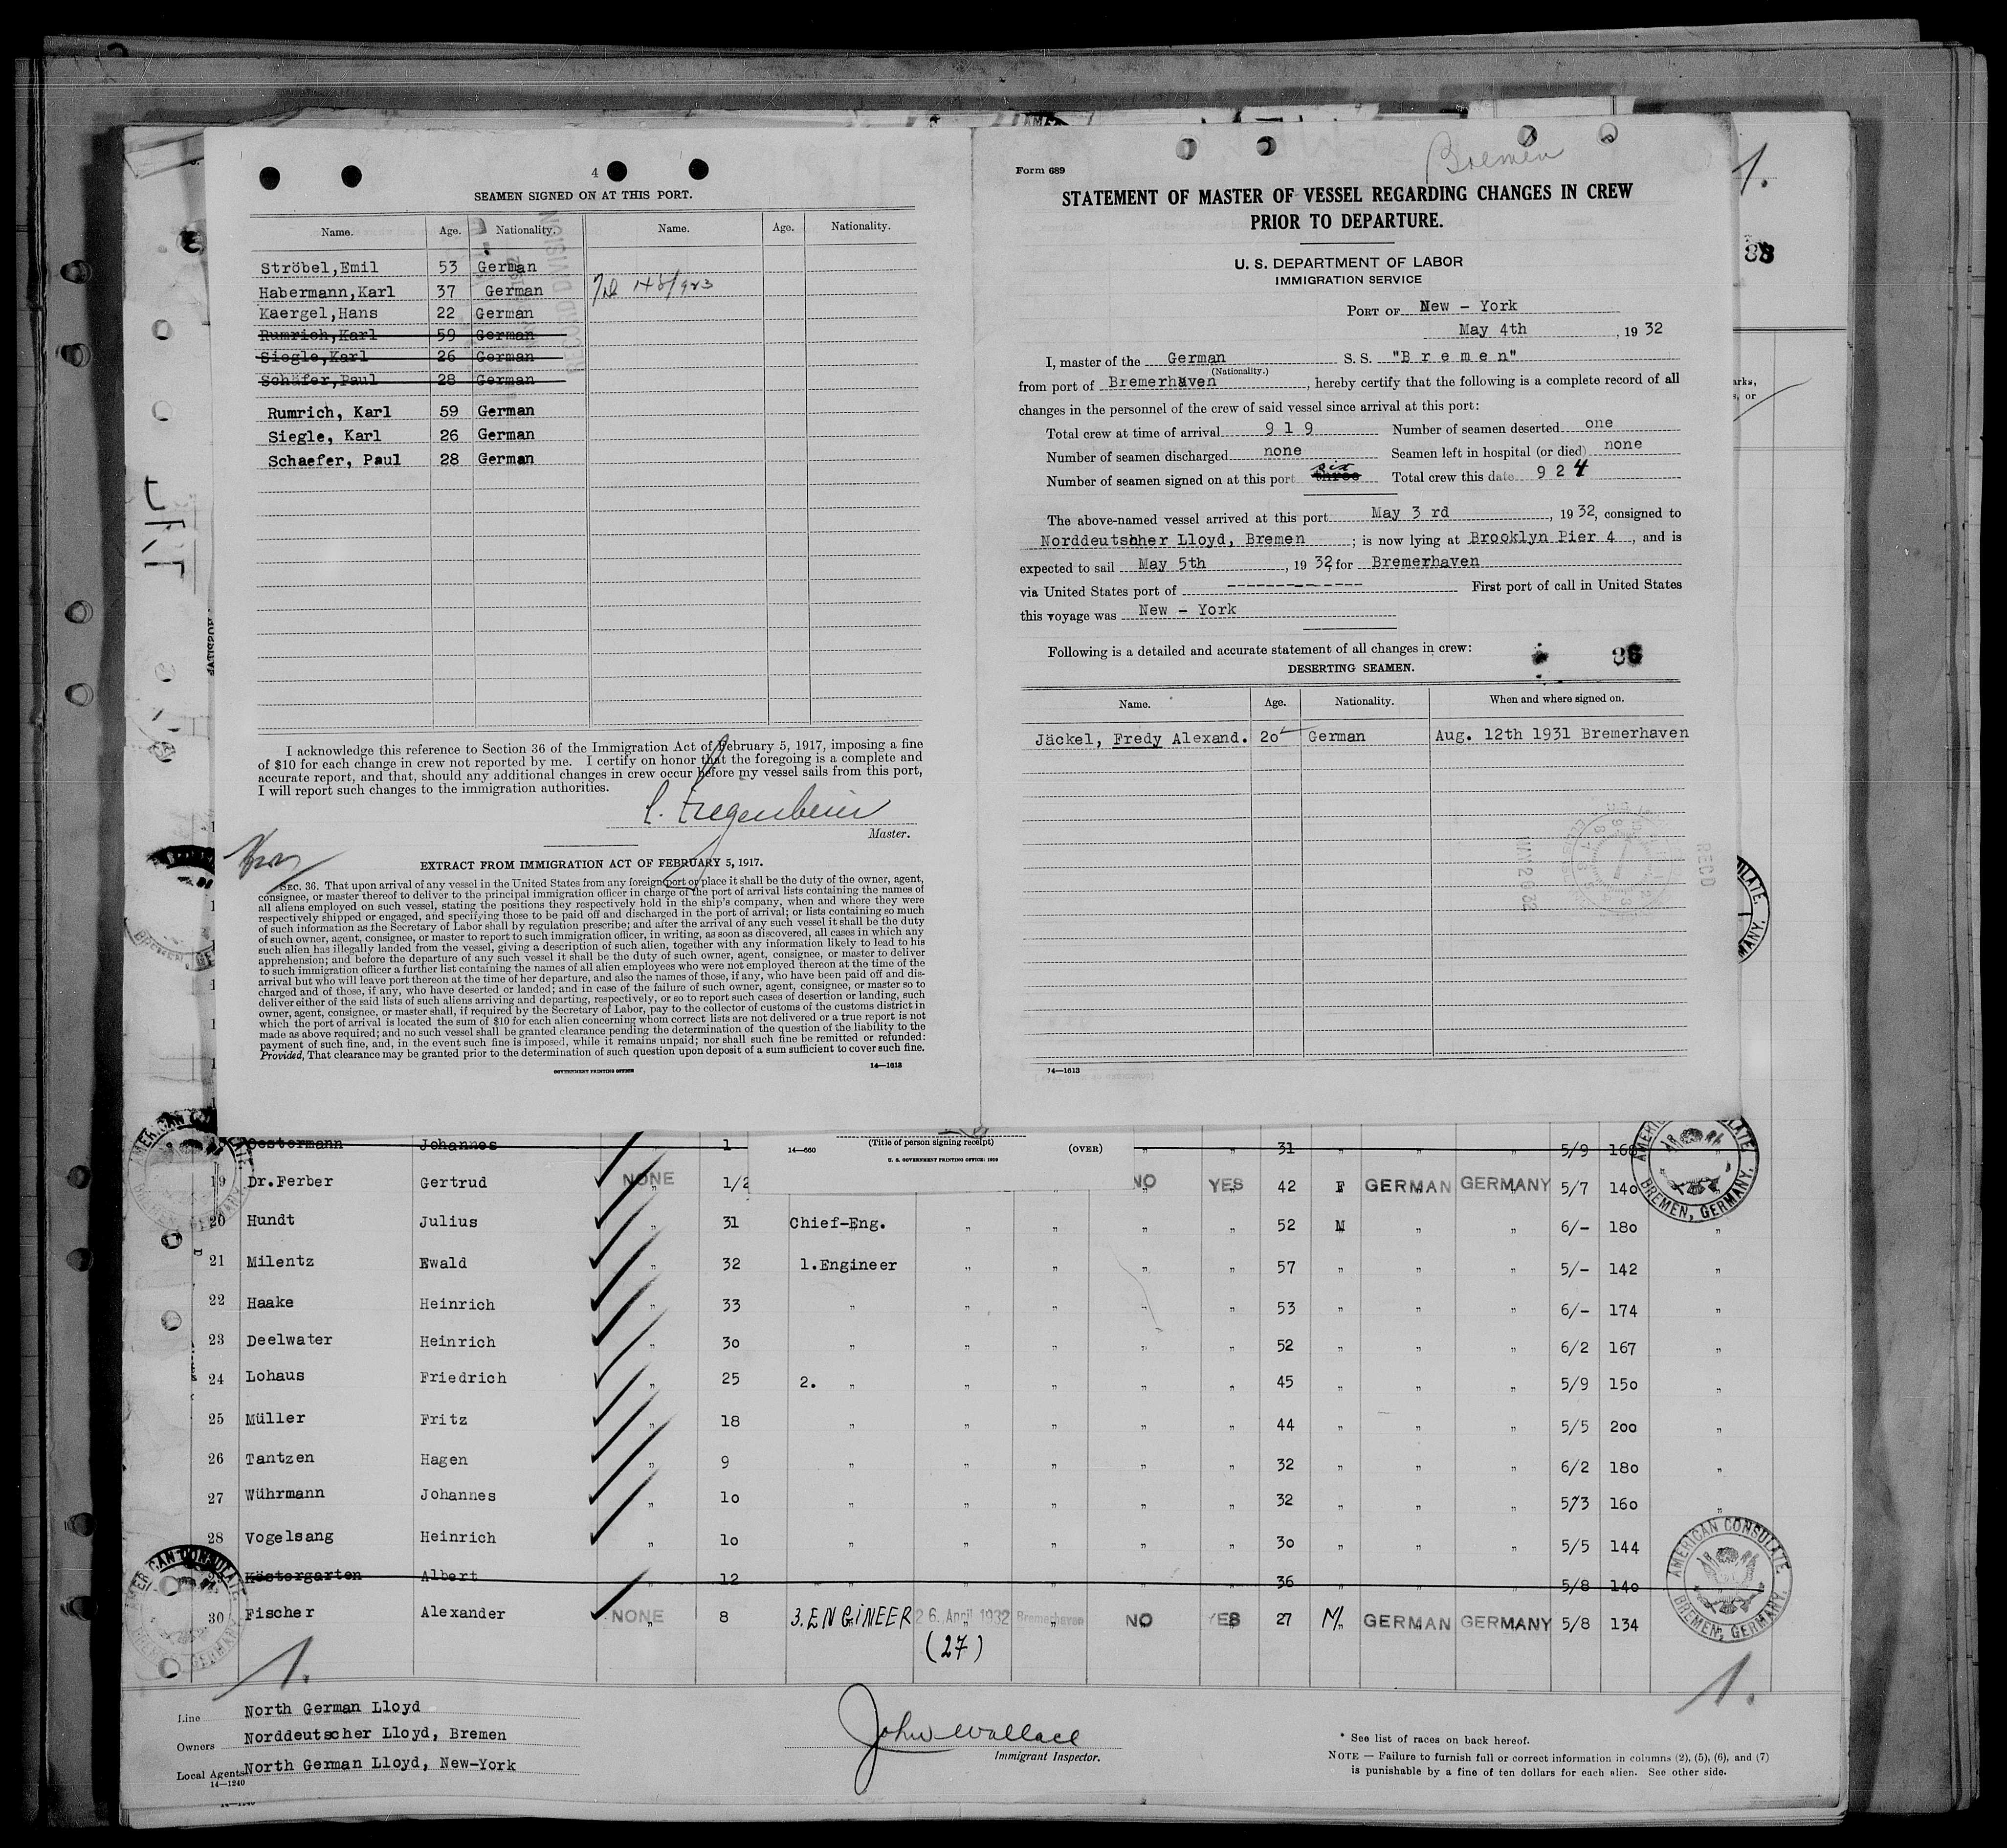 4
SEAMEN SIGNED ON AT THIS PORT.
Name. Age. Nationality. Name. Age. Nationality.
Ströbel,Emil 53 German
Habermann,Karl 37 German
Kaergel,Hans 22 German
Rumrich,Karl 59 German
Siegle,Karl 26 German
Schäfer,Paul 28 German
Rumrich, Karl 59 German
Siegle, Karl 26 German
Schaefer, Paul 28 German
I acknowledge this reference to Section 36 of the Immigration Act of February 5, 1917, imposing a fine
of $10 for each change in crew not reported by me. I certify on honor that the foregoing is a complete and
accurate report, and that, should any additional changes in crew occur before my vessel sails from this port,
I will report such changes to the immigration authorities.
Master.
EXTRACT FROM IMMIGRATION ACT OF FEBRUARY 5, 1917.
SEC. 36. That upon arrival of any vessel in the United States from any foreign port or place it shall be the duty of the owner, agent,
consignee, or master thereof to deliver to the principal immigration officer in charge of the port of arrival lists containing the names of
all aliens employed on such vessel, stating the positions they respectively hold in the ship's company, when and where they were
respectively shipped or engaged, and specifying those to be paid off and discharged in the port of arrival; or lists containing so much
of such information as the Secretary of Labor shall by regulation prescribe; and after the arrival of any such vessel it shall be the duty
of such owner, agent, consignee, or master to report to such immigration officer, in writing, as soon as discovered, all cases in which any
such alien has illegally landed from the vessel, giving a description of such alien, together with any information likely to lead to his
apprehension; and before the departure of any such vessel it shall be the duty of such owner, agent, consignee, or master to deliver
to such immigration officer a further list containing the names of all alien employees who were not employed thereon at the time of the
arrival but who will leave port thereon at the time of her departure, and also the names of those, if any, who have been paid off and dis-
charged and of those, if any, who have deserted or landed; and in case of the failure of such owner, agent, consignee, or master so to
deliver either of the said lists of such aliens arriving and departing, respectively, or so to report such cases of desertion or landing, such
owner, agent, consignee, or master shall, if required by the Secretary of Labor, pay to the collector of customs of the customs district in
which the port of arrival is located the sum of $10 for each alien concerning whom correct lists are not delivered or a true report is not
made as above required; and no such vessel shall be granted clearance pending the determination of the question of the liability to the
payment of such fine, and, in the event such fine is imposed, while it remains unpaid; nor shall such fine be remitted or refunded:
Provided, That clearance may be granted prior to the determination of such question upon deposit of a sum sufficient to cover such fine.
GOVERNMENT PRINTING OFFICE 14—1613
Bremen
Form 689
STATEMENT OF MASTER OF VESSEL REGARDING CHANGES IN CREW
PRIOR TO DEPARTURE.
U. S. DEPARTMENT OF LABOR
IMMIGRATION SERVICE
PORT OF New - York
May 4th, 1932
I, master of the German S. S. "B r e m e n"
(Nationality.)
from port of Bremerhaven, hereby certify that the following is a complete record of all
changes in the personnel of the crew of said vessel since arrival at this port:
Total crew at time of arrival 9 1 9 Number of seamen deserted one
Number of seamen discharged none Seamen left in hospital (or died) none
Number of seamen signed on at this port three six Total crew this date 9 2 4
The above-named vessel arrived at this port May 3 rd, 1932, consigned to
Norddeutscher Lloyd, Bremen; is now lying at Brooklyn Pier 4, and is
expected to sail May 5th, 1932, for Bremerhaven
via United States port of ------------- First port of call in United States
this voyage was New - York
Following is a detailed and accurate statement of all changes in crew:
DESERTING SEAMEN.
Name. Age. Nationality. When and where signed on.
Jäckel, Fredy Alexand. 20 German Aug. 12th 1931 Bremerhaven
RECD
14—1613
14—660 (Title of person signing receipt) (OVER)
U. S. GOVERNMENT PRINTING OFFICE: 1929
Oestermann Johannes 1 " " 31 " " " 5/9 160 "
19 Dr.Ferber Gertrud NONE 1/2 NO YES 42 F GERMAN GERMANY 5/7 140 "
20 Hundt Julius " 31 Chief-Eng. " " " " 52 M " " 6/- 180 "
21 Milentz Ewald " 32 1.Engineer " " " " 57 " " " 5/- 142 "
22 Haake Heinrich " 33 " " " " " 53 " " " 6/- 174 "
23 Deelwater Heinrich " 30 " " " " " 52 " " " 6/2 167 "
24 Lohaus Friedrich " 25 2. " " " " " 45 " " " 5/9 150 "
25 Müller Fritz " 18 " " " " " 44 " " " 5/5 200 "
26 Tantzen Hagen " 9 " " " " " 32 " " " 6/2 180 "
27 Wührmann Johannes " 10 " " " " " 32 " " " 5/3 160 "
28 Vogelsang Heinrich " 10 " " " " " 30 " " " 5/5 144 "
Köstergarten Albert " 12 " " " " " 36 " " " 5/8 140 "
30 Fischer Alexander NONE 8 3.ENGINEER 26. April 1932 Bremerhaven NO YES 27 M. GERMAN GERMANY 5/8 134
(27)
AMERICAN CONSULATE
BREMEN, GERMANY.
1. 1.
Line North German Lloyd
Owners Norddeutscher Lloyd, Bremen
Local Agents North German Lloyd, New-York
14—1240
John Wallace
Immigrant Inspector.
* See list of races on back hereof.
NOTE — Failure to furnish full or correct information in columns (2), (5), (6), and (7)
is punishable by a fine of ten dollars for each alien. See other side.